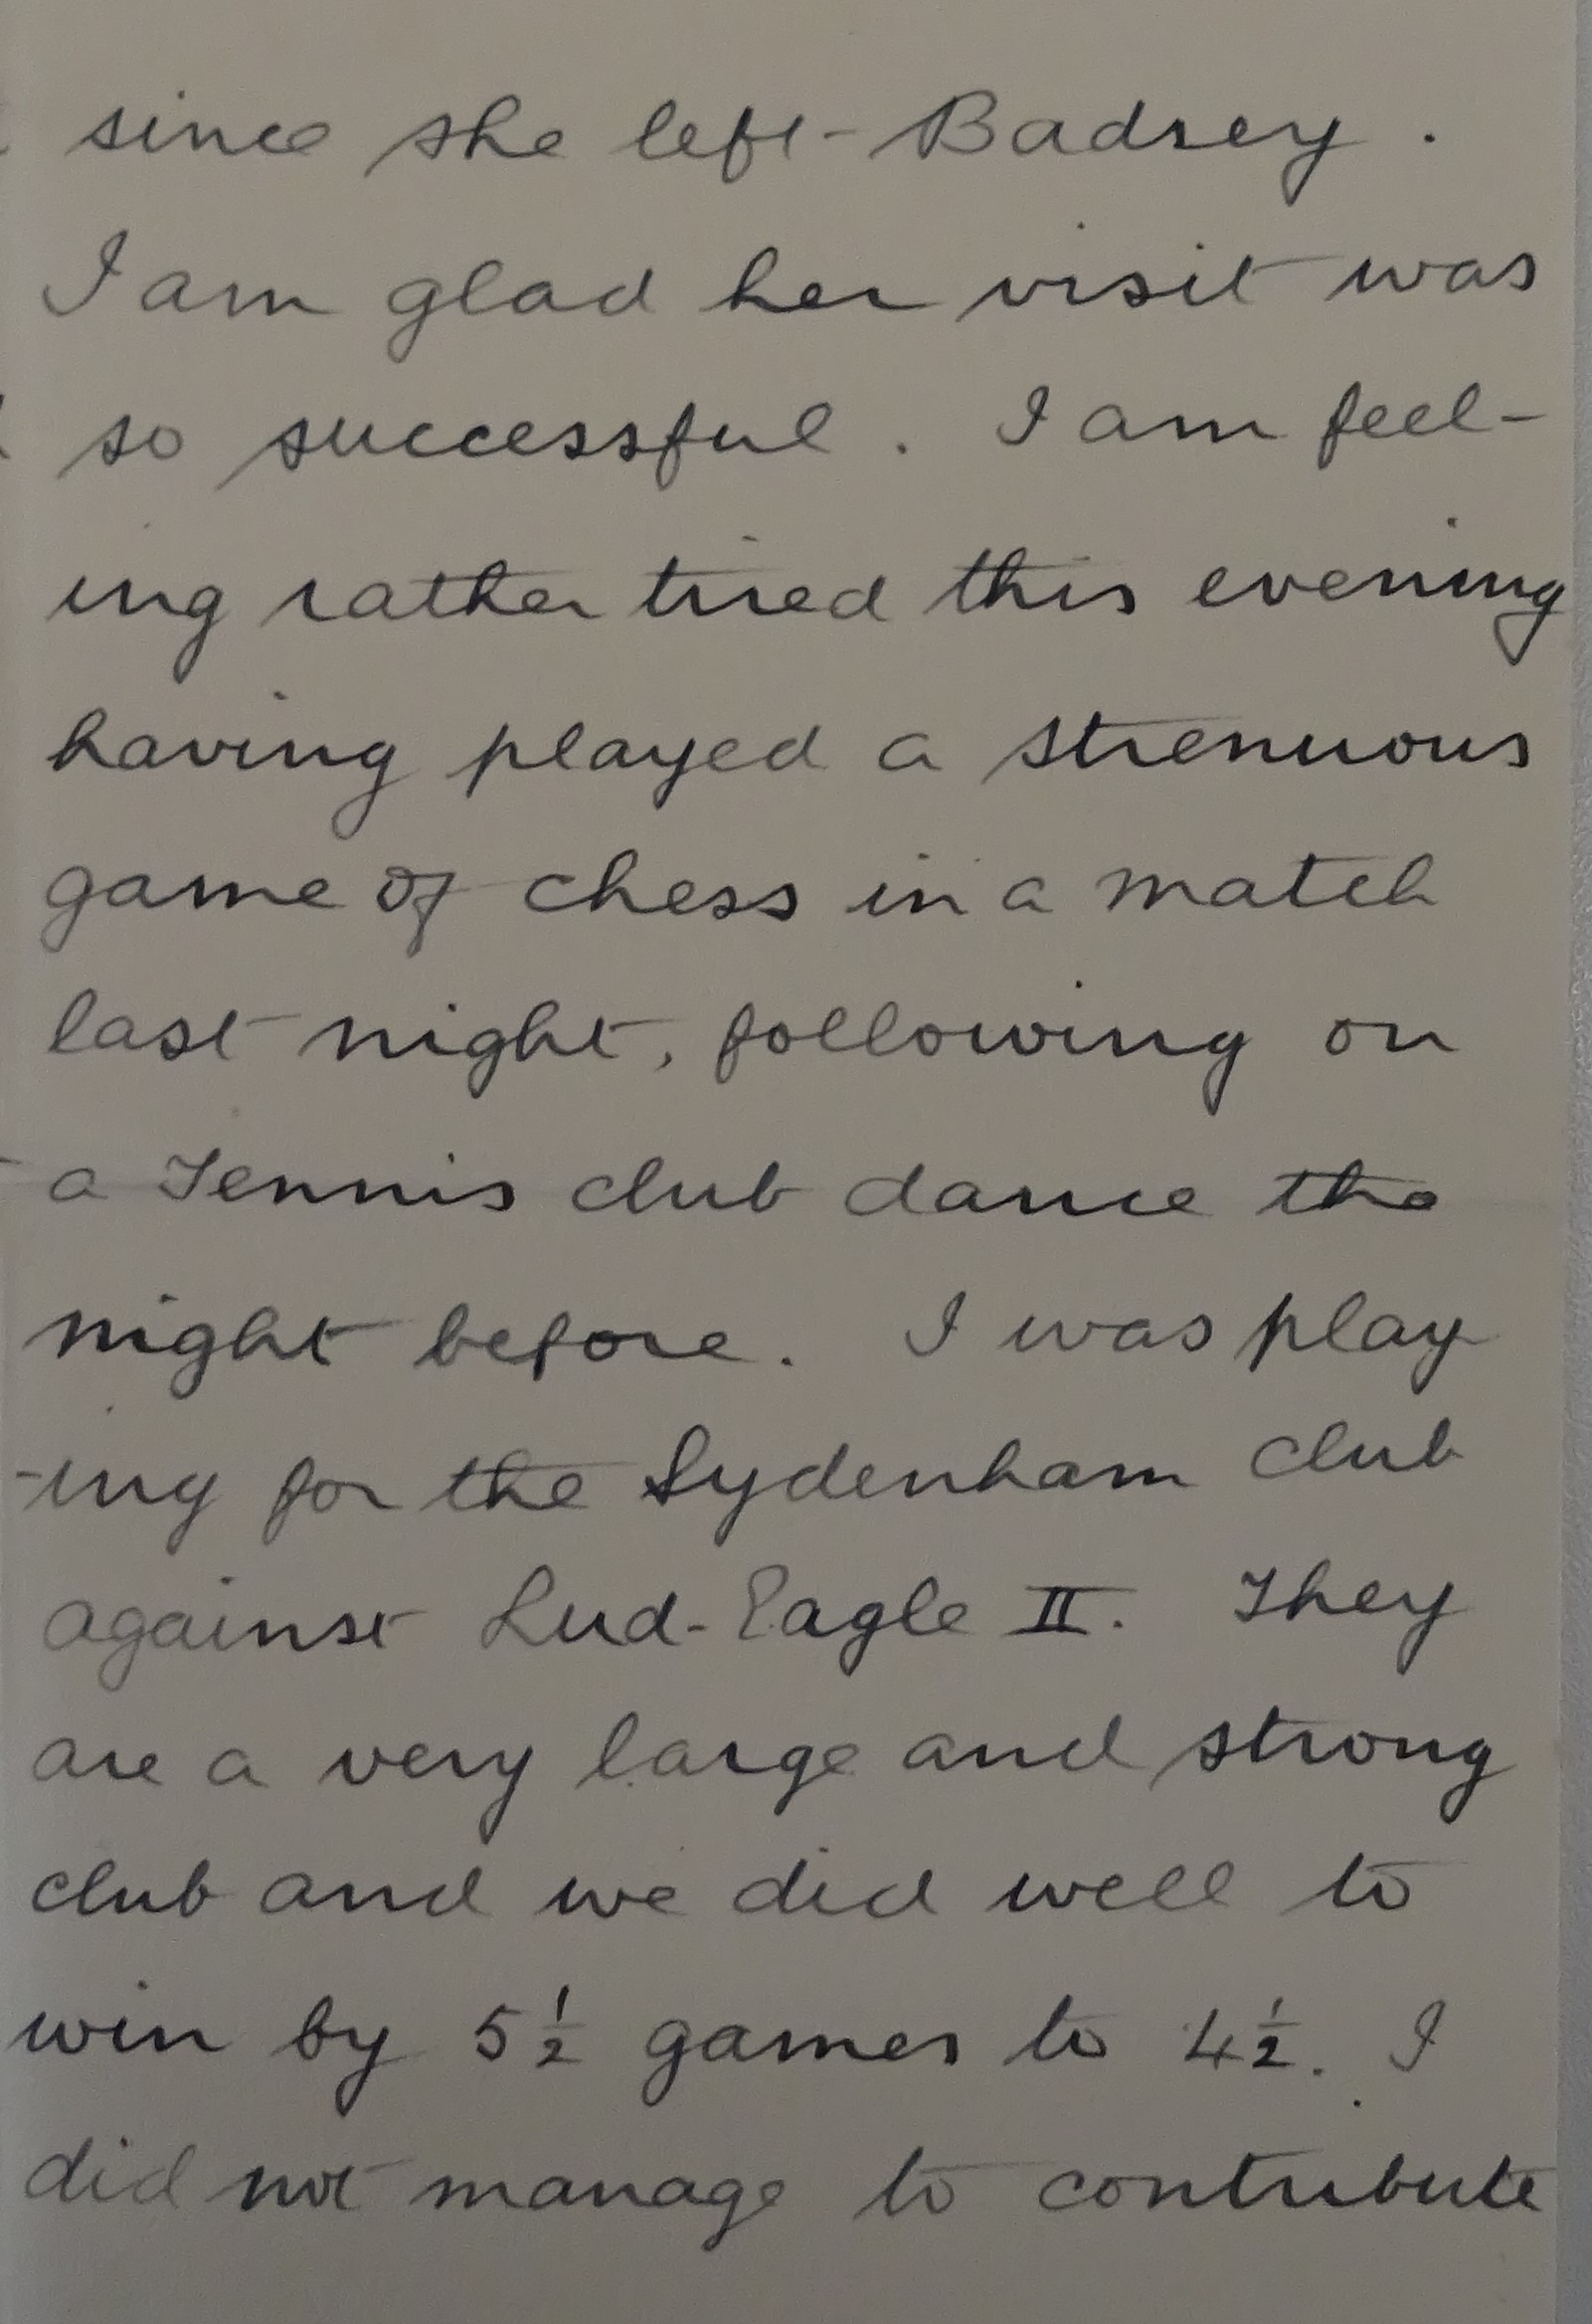 since she left Badsey.
I am glad her visit was
so successful. I am feel-
ing rather tired this evening
having played a strenuous
game of chess in a match
last night, following on
a Tennis club dance the
night before. I was play
-ing for the Sydenham club
against Lud-Eagle II. They
are a very large and strong
club and we did well to
win by 5½ games to 4½. I
did not manage to contribute